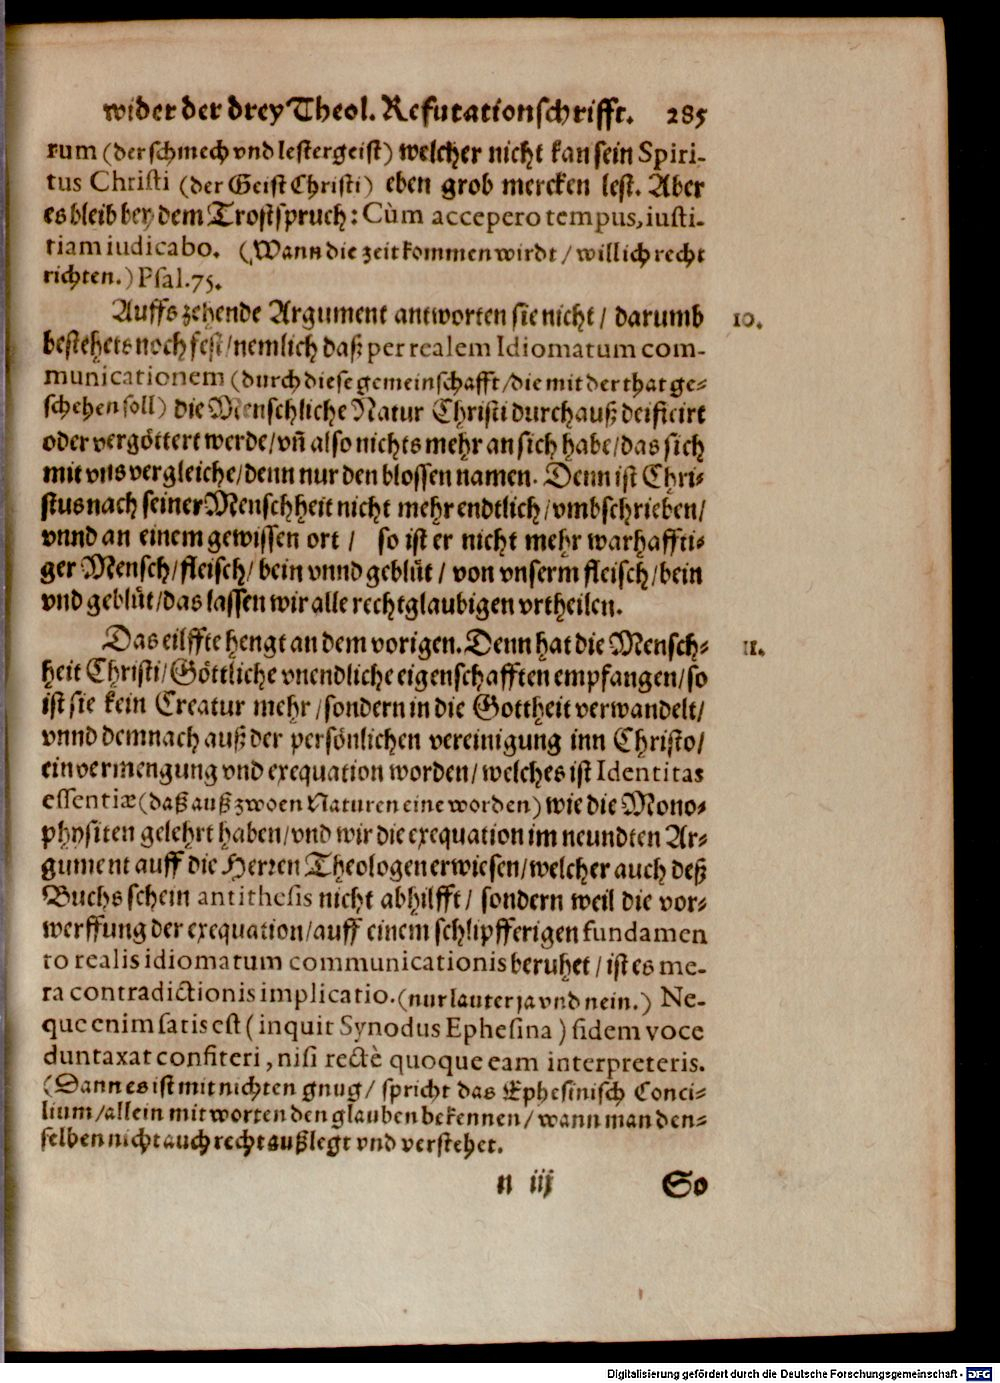 wider der drey Theol. Refutationschrifft. 285
rum (der schmech vnd lestergeist) welcher nicht kan sein Spiri-
tus Christi (der Geist Christi) eben grob mercken lest. Aber
es bleib bey dem Trostspruch: Cùm accepero tempus, iusti-
tiam iudicabo. (Wann die zeit kommen wirdt / will ich recht
richten.) Psal. 75.
Auffs zehende Argument antworten sie nicht / darumb 10.
bestehets noch fest / nemlich daß per realem Idiomatum com-
municationem (durch diese gemeinschafft / die mit der that ge-
schehen soll) die Menschliche Natur Christi durchauß deificirt
oder vergöttert werde / vñ also nichts mehr an sich habe / das sich
mit vns vergleiche / denn nur den blossen namen. Denn ist Chri-
stus nach seiner Menschheit nicht mehr endtlich / vmbschrieben /
vnnd an einem gewissen ort / so ist er nicht mehr warhaffti-
ger Mensch / fleisch / bein vnnd geblüt / von vnserm fleisch / bein
vnd geblüt / das lassen wir alle rechtglaubigen vrtheilen.
Das eilffte hengt an dem vorigen. Denn hat die Mensch- 11.
heit Christi / Göttliche vnendliche eigenschafften empfangen / so
ist sie kein Creatur mehr / sondern in die Gottheit verwandelt /
vnnd demnach auß der persönlichen vereinigung inn Christo /
ein vermengung vnd exequation worden / welches ist Identitas
essentiæ (daß auß zwoen Naturen eine worden) wie die Mono-
physiten gelehrt haben / vnd wir die exequation im neundten Ar-
gument auff die Herren Theologen erwiesen / welcher auch deß
Buchs schein antithesis nicht abhilfft / sondern weil die vor-
werffung der exequation / auff einem schlipfferigen fundamen
to realis idiomatum communicationis beruhet / ist es me-
ra contradictionis implicatio. (nur lauter ja vnd nein.) Ne-
que enim satis est (inquit Synodus Ephesina) fidem voce
duntaxat confiteri, nisi rectè quoque eam interpreteris.
(Dann es ist mit nichten gnug / spricht das Ephesinisch Conci-
lium / allein mit worten den glauben bekennen / wann man den-
selben nicht auch recht außlegt vnd verstehet.
n iij So
Digitalisierung gefördert durch die Deutsche Forschungsgemeinschaft - DFG